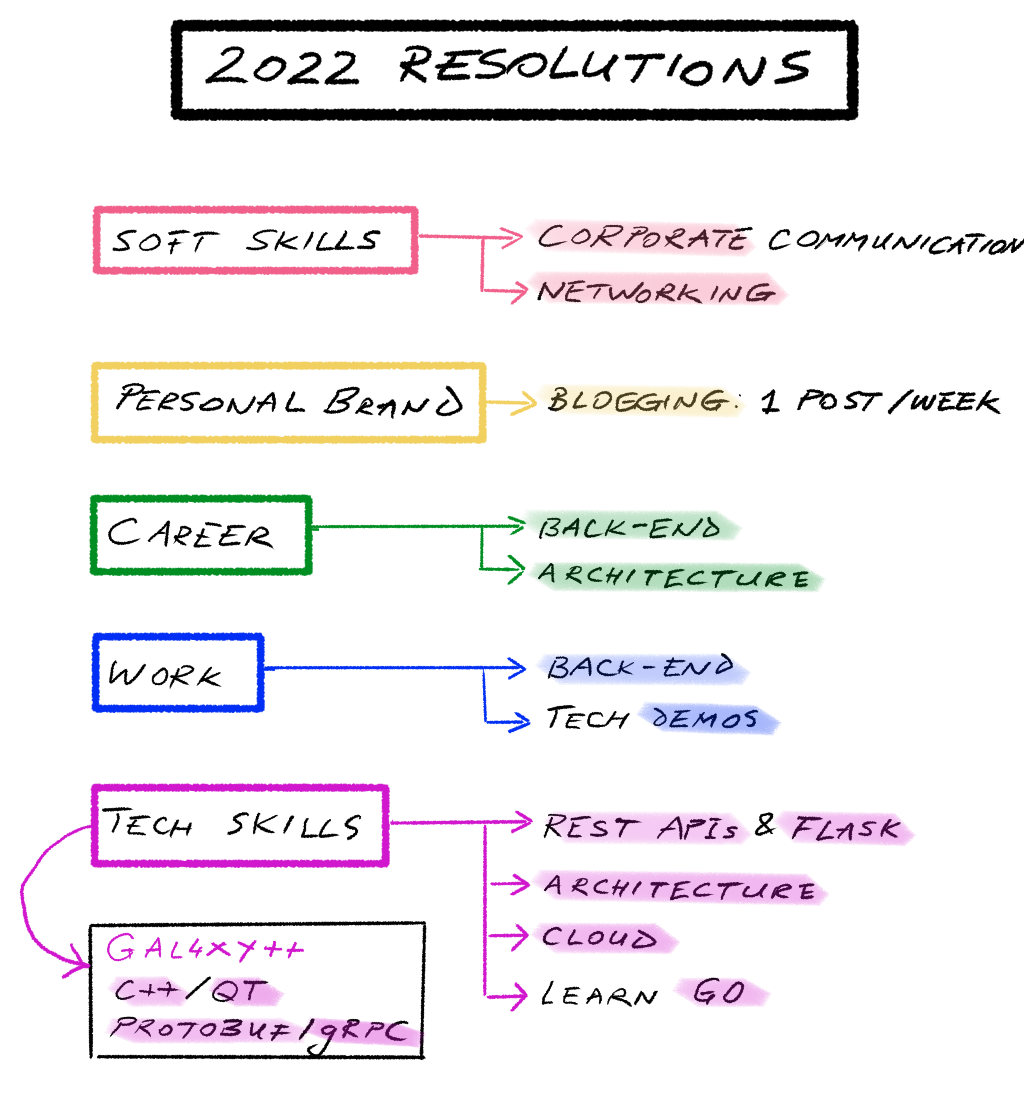 2022 RESOLUTIONS
SOFT SKILLS
CORPORATE COMMUNICATION
NETWORKING
PERSONAL BRAND
BLOGGING: 1 POST/WEEK
CAREER
BACK-END
ARCHITECTURE
WORK
BACK-END
TECH DEMOS
TECH SKILLS
REST APIs & FLASK
ARCHITECTURE
CLOUD
LEARN GO
GAL4XY++
C++/QT
PROTOBUF/gRPC